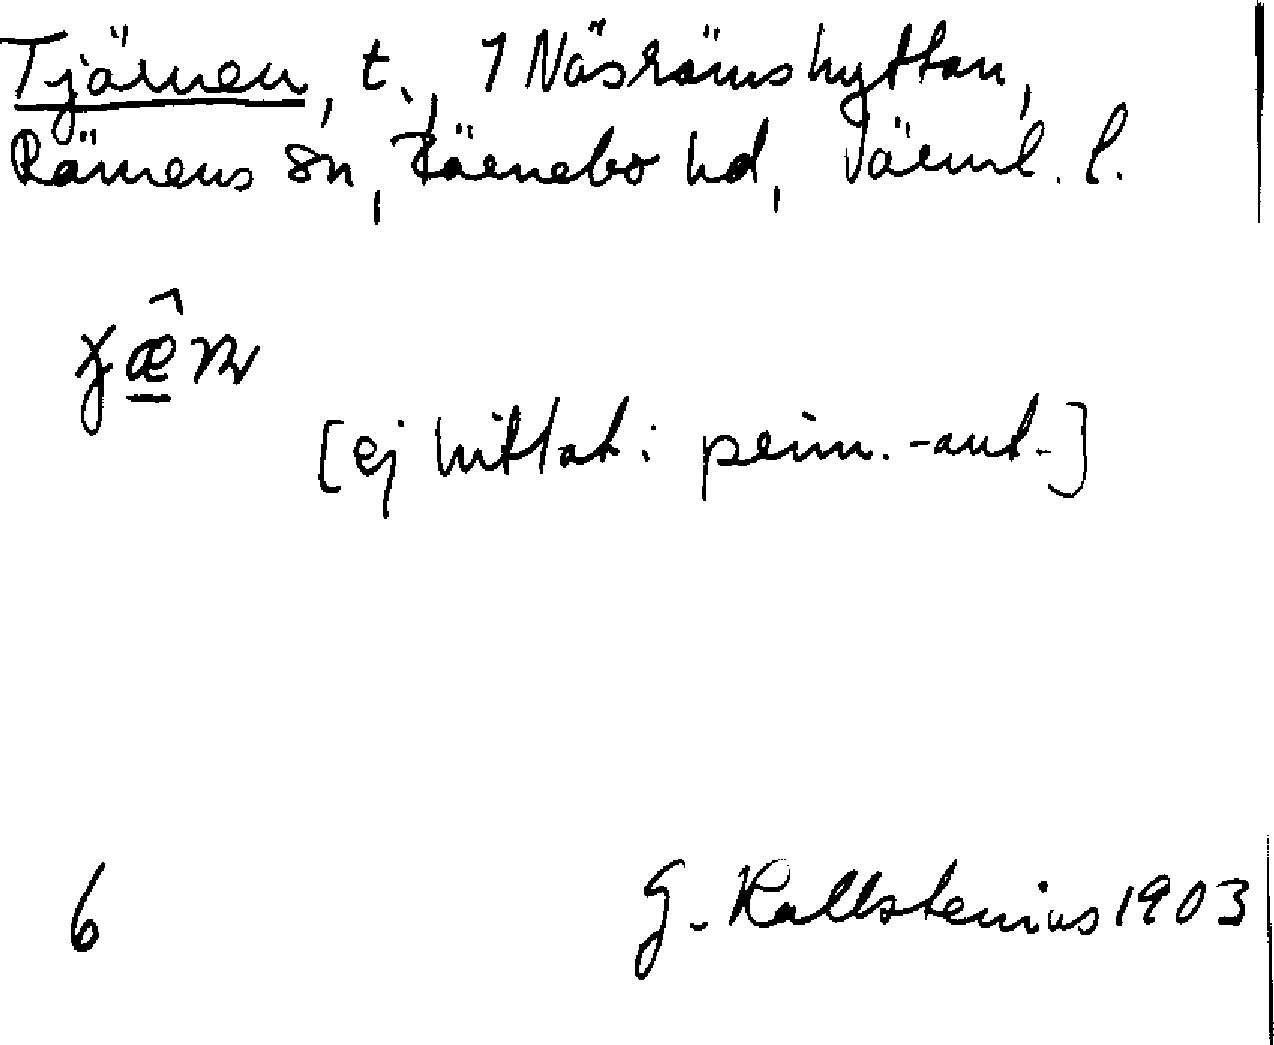 Tjärnen, t., 1 Näsrämshyttan,
Rämens sn, Färnebo hd, Värml. l.
[ej hittat i perm.-ant.]
6 G. Kallstenius 1903